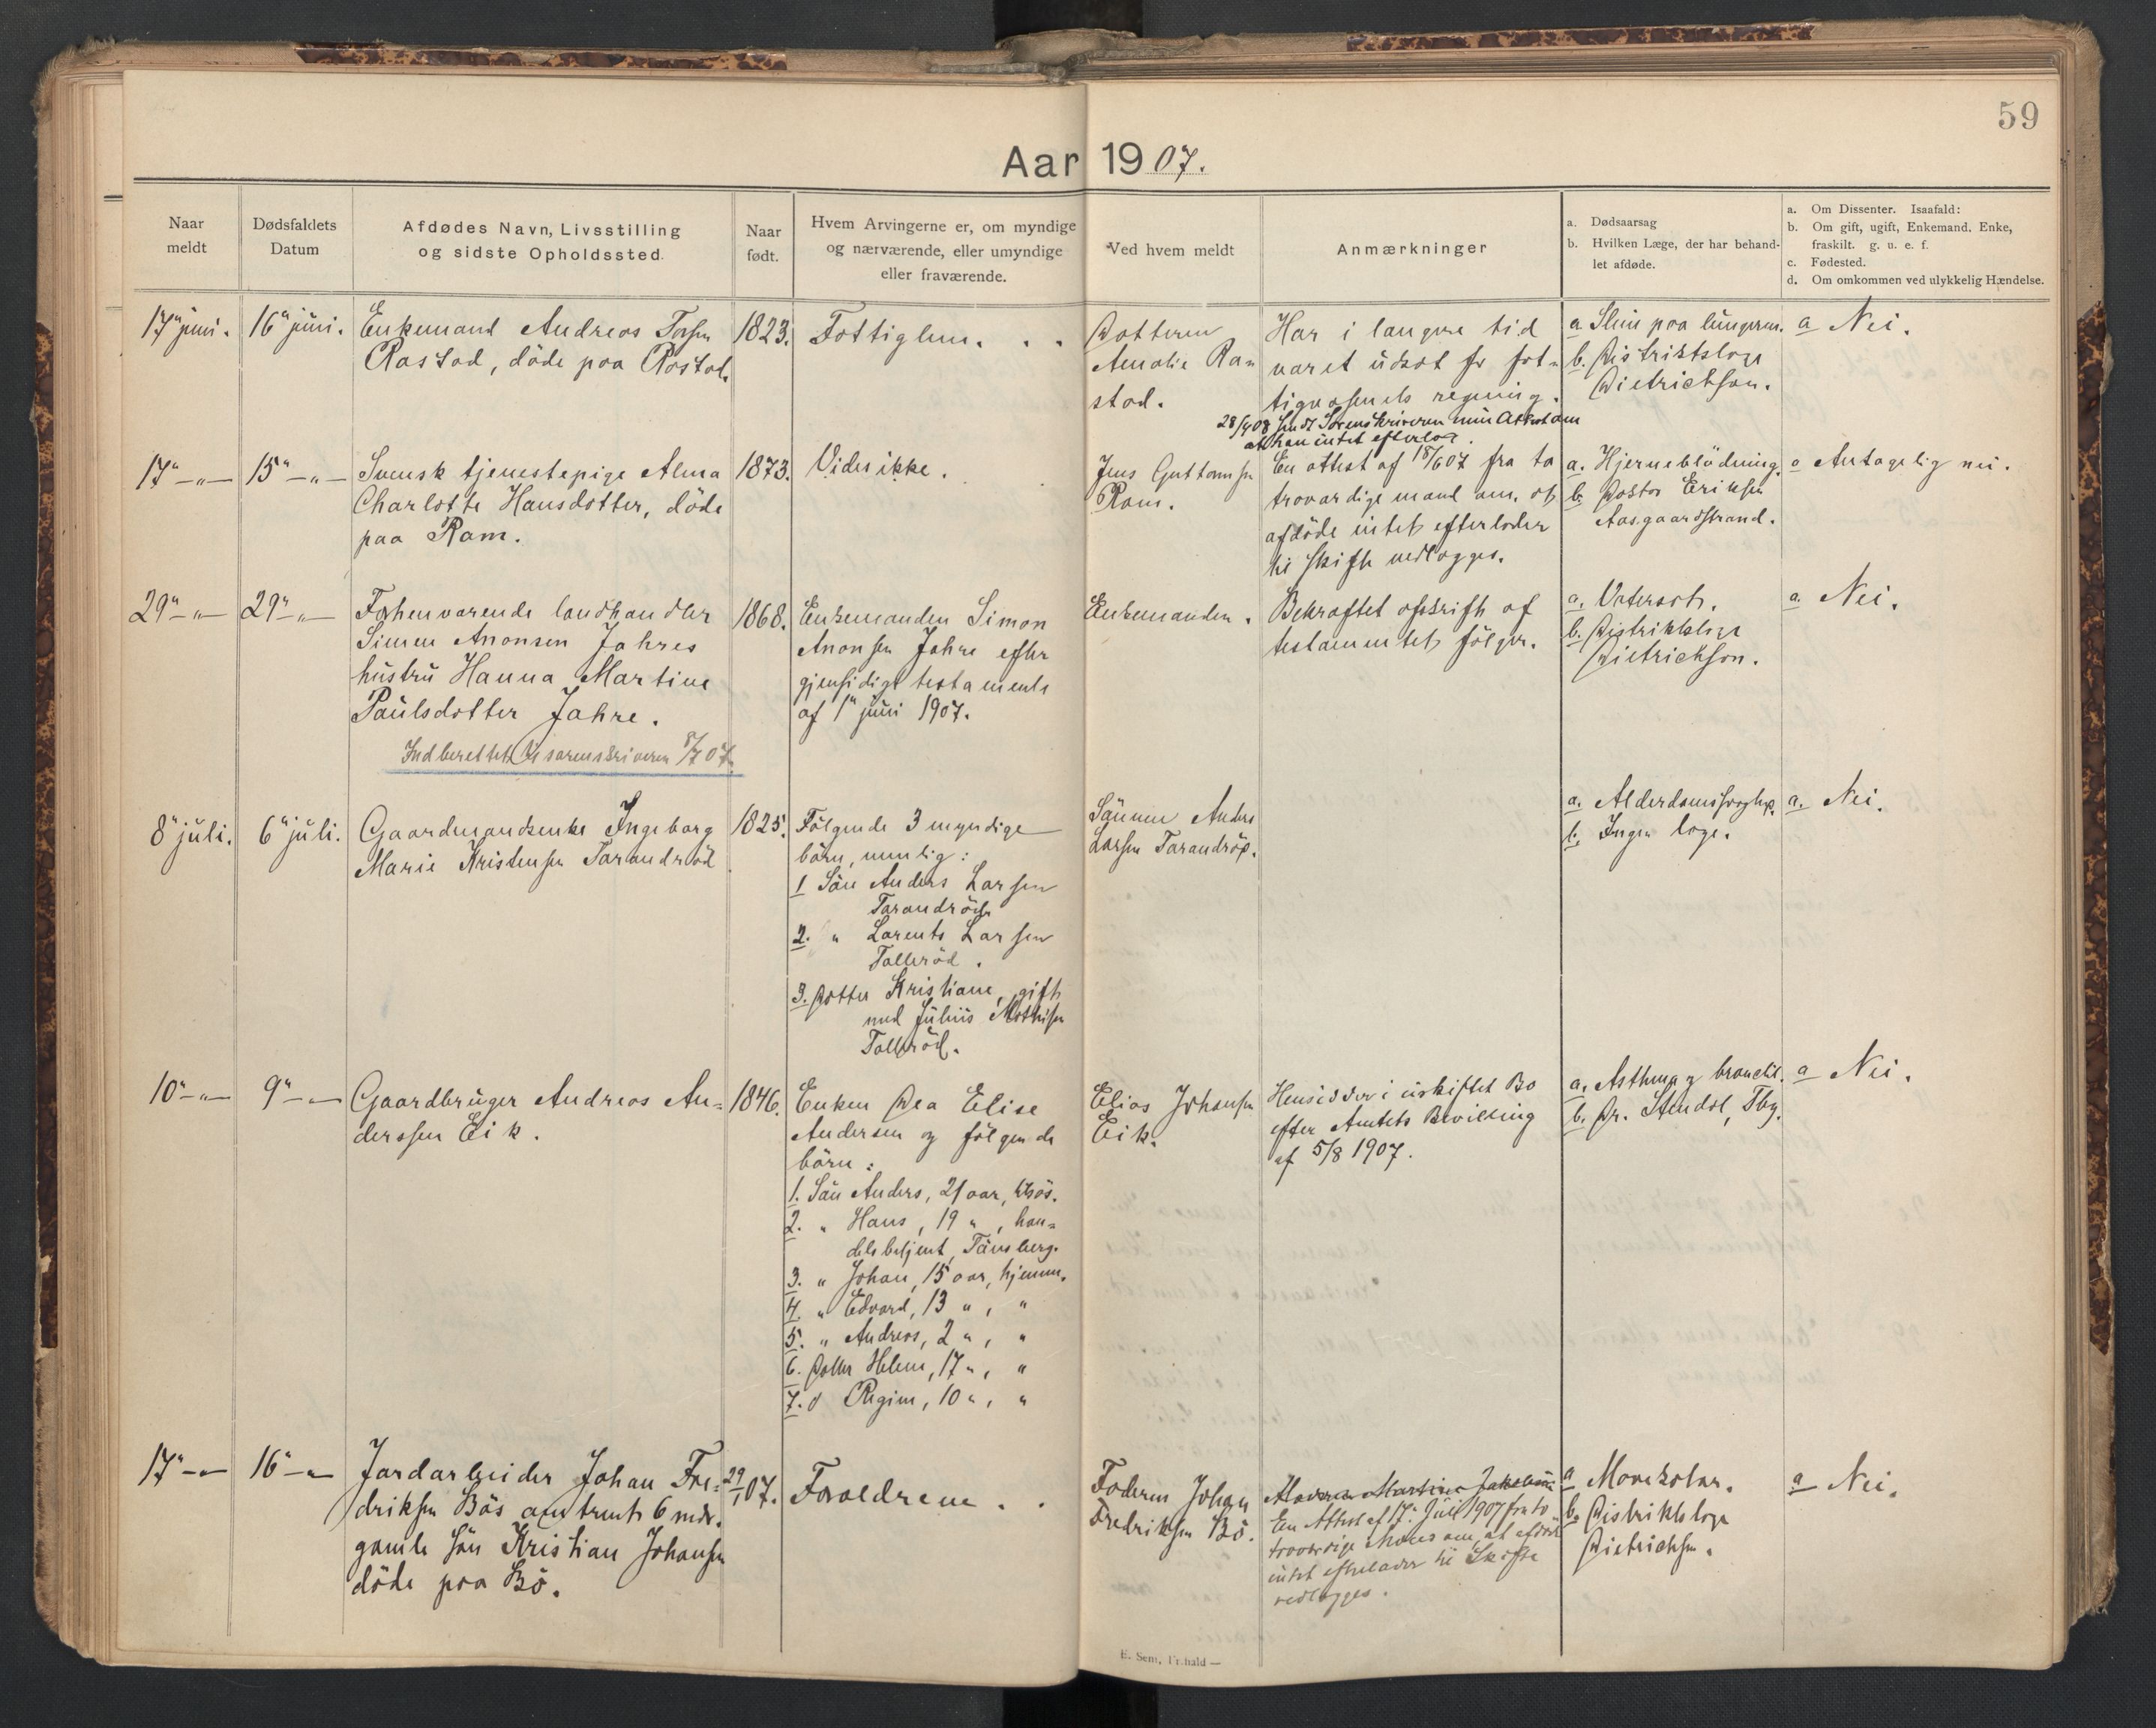 59
Aar 1907.
Naar meldt
Dødsfaldets Datum
Afdødes Navn, Livsstilling og sidste Opholdssted.
Naar født.
Hvem Arvingerne er, om myndige og nærværende, eller umyndige eller fraværende.
Ved hvem meldt
Anmærkninger
a. Dødsaarsag
b. Hvilken Læge, der har behandlet afdøde.
a. Om Dissenter. Isaafald:
b. Om gift, ugift, Enkemand, Enke, fraskilt. g. u. e. f.
c. Fødested.
d. Om omkommen ved ulykkelig Hændelse.
17" juni.
16" juni.
Enkemand Andreas
Rastad, döde paa Rastad.
1823.
Fattiglem.
Datteren
Amalie Ra=
stad.
Har i længere tid
været udsat for fat=
tigvæsenets regning.
28/4 08 sendt Sorenskriveren min Attest om
at han intet efterlod.
a Slim paa lungerne.
b. Distriktslæge
Dietrichson.
a Nei.
17" — " —
15" — " —
Svensk tjenestepige Alma
Charlotte Hansdotter, döde
paa Ram.
1873.
Vides ikke.
Jens Guttormsen
Ram.
En attest af 18/6 07 fra to
troværdige mænd om, at
afdöde intet efterlader
til skifte vedlægges.
a. Hjerneblödning.
b. Doktor Eriksen
Aasgaardstrand.
a Antagelig nei.
29" — " —
29" — " —
Forhenværende landhandler
Simen Anonsen Jahres
hustru Hanna Martine
Paulsdotter Jahre.
Indberettet til sorenskriveren 8/7 07.
1868.
Enkemanden Simon
Anonsen Jahre efter
gjensidigt testamente
af 1" juni 1907.
Enkemanden.
Bekræftet afskrift af
testamentet følger.
a.
b. Distriktslæge
Dietrichson.
a. Nei.
8" juli.
6" juli.
Gaardmandsenke Ingeborg
Marie Kristensen Tarandröd
1825.
Følgende 3 myndige
börn, nemlig:
1 Sön Anders Larsen
Tarandröd
2. " Larents Larsen
Tolleröd.
3. Datter Kristiane, gift
med Julius Mathisen
Tolleröd.
Sönnen Anders
Larsen Tarandröd.
a. Alderdomssvaghed.
b. Ingen læge.
a. Nei.
10" — " —
9" — " —
Gaardbruger Andreas An=
derssen Eik.
1846.
Enken Dea Elise
Andersen og følgende
börn:
1. Sön Anders, 21 aar, tilsös.
2. " Hans, 19 " , han=
delsbetjent, Tönsberg.
3. " Johan, 15 aar, hjemme.
4. " Edvard, 13 " , "
5. " Andreas, 2 " , "
6. Datter Helene, 17 " , "
7. d Regine, 10 " , "
Elias Johansen
Eik.
Hensidder i uskiftet Bo
efter Amtets Bevilling
af 5/8 1907.
a. Asthma og bronchit.
b. Dr. Stendal, Tbg.
a Nei.
17" — " —
16" — " —
Jordarbeider Johan Fre=
driksen Bös omtrent 6 mdr.
gamle sön Kristian Johansen
döde paa Bö.
29/1 07.
Forældrene.
Faderen Johan
Fredriksen Bö.
En Attest af 17" Juli 1907 fra to
troværdige Mænd om, at afdöde
intet efterlader til Skifte
vedlægges.
a
b. Distriktslæge
Dietrichson.
a Nei.
E. Sem, Fr.hald —